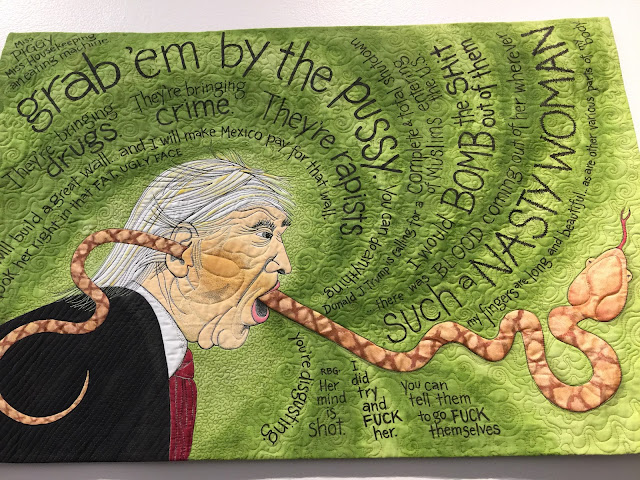 MISS
PIGGY
Miss Housekeeping
an eating machine.
grab 'em by the pussy. You can do anything
They're bringing
drugs
They're bringing
crime
They're rapists
ill build a great wall and I will make Mexico pay for that wall.
ook her right in that FAT, UGLY FACE
Donald J Trump is calling for a complete & total shutdown
of Muslims entering
the U.S.
I would BOMB the SHIT
out of them
there was BLOOD coming out of her wherever
such a NASTY WOMAN
my fingers are long and beautiful, as are other various parts of my body
you're disgusting
RBG-
Her
mind
is
shot.
I
did
try
and
FUCK
her.
You can
tell them
to go FUCK
themselves